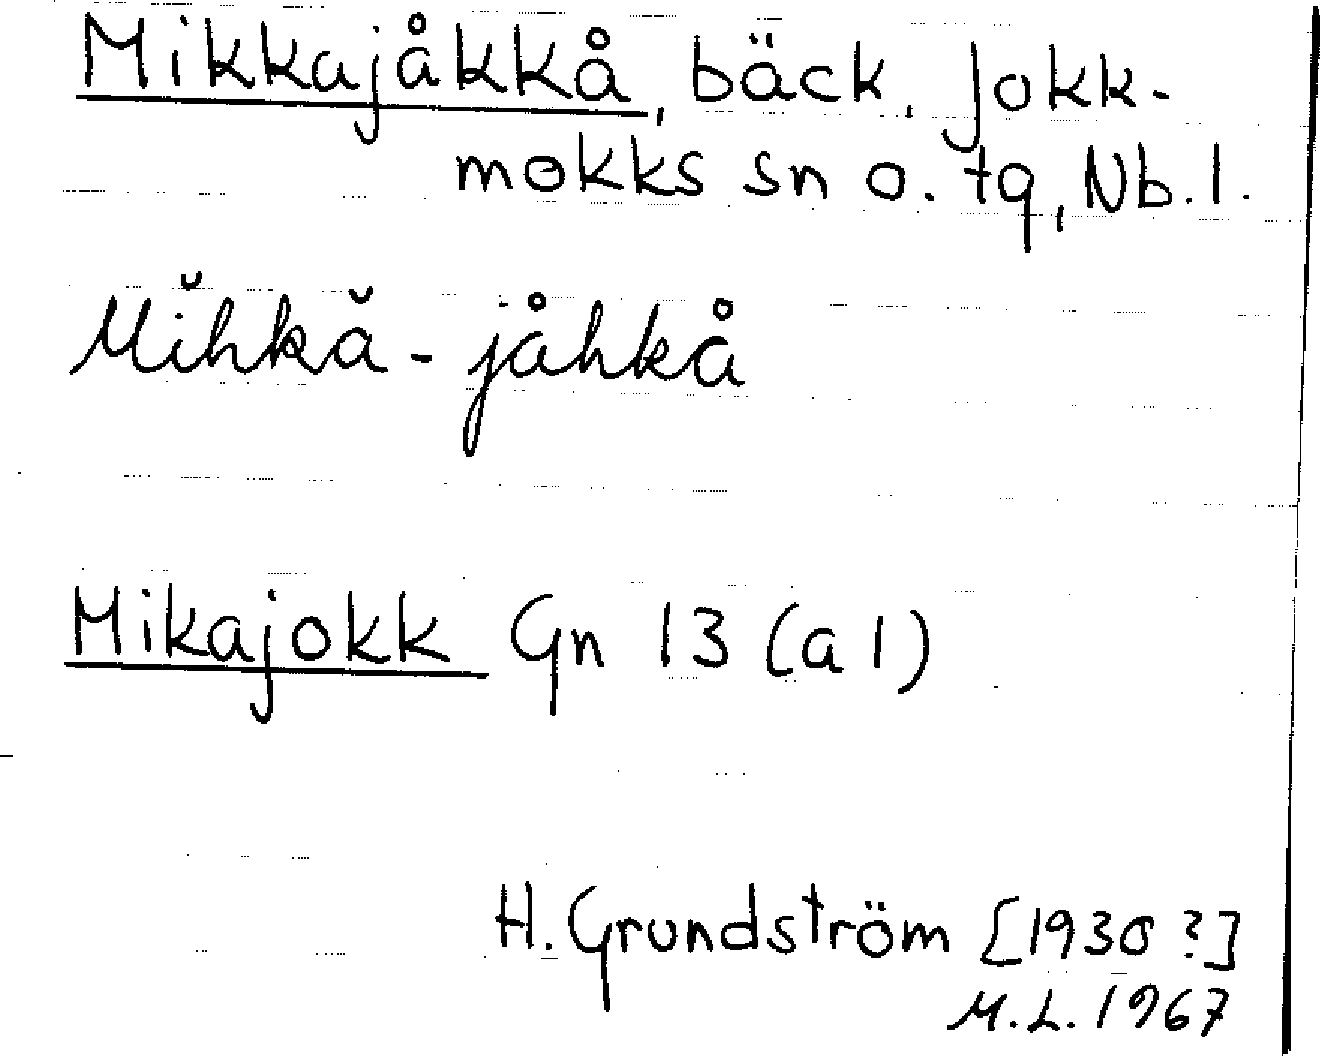 Mikkajåkkå, bäck, Jokk-
mokks sn o. tg, Nb. l.
Mĭhkă-jåhkå
Mikajokk Gn 13 (a 1)
H. Grundström [1930 ?]
M.L. 1967